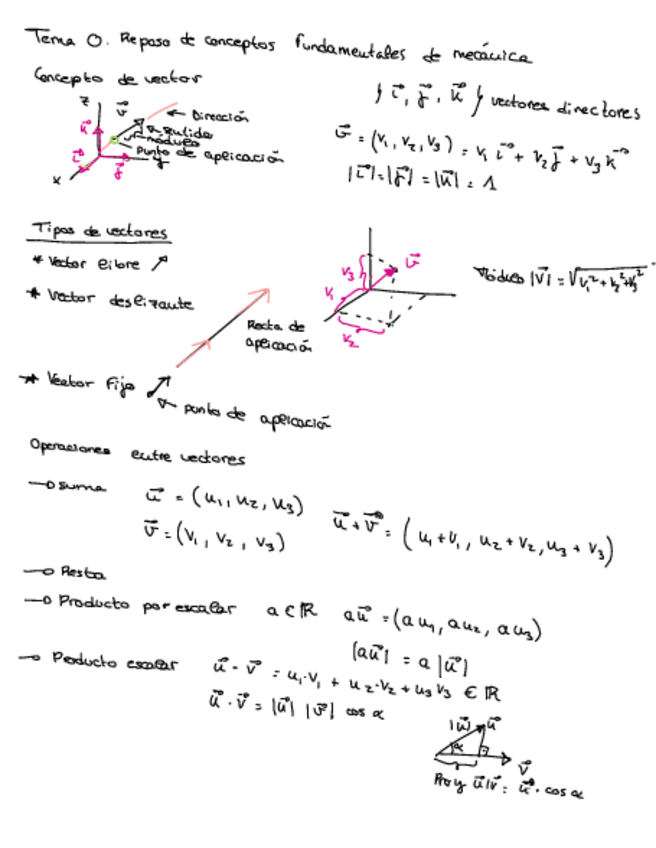 Tema 0. Repaso de conceptos fundamentales de mecánica
Concepto de vector
z
v⃗
← Dirección
Sentido
módulo
Punto de aplicación
k⃗
i⃗
j⃗
x
y
{ i⃗, j⃗, k⃗ } vectores directores
v⃗ = (v₁, v₂, v₃) = v₁ i⃗ + v₂ j⃗ + v₃ k⃗
|i⃗| = |j⃗| = |k⃗| = 1
Tipos de vectores
* Vector libre
* Vector deslizante
Recta de
aplicación
v₃
v₁
v₂
v⃗
Módulo |v⃗| = √v₁² + v₂² + v₃²
* Vector Fijo
punto de aplicación
Operaciones entre vectores
→ suma
u⃗ = (u₁, u₂, u₃)
v⃗ = (v₁, v₂, v₃)
u⃗ + v⃗ = (u₁ + v₁, u₂ + v₂, u₃ + v₃)
→ Resta
→ Producto por escalar a ∈ ℝ a u⃗ = (a u₁, a u₂, a u₃)
|a u⃗| = a |u⃗|
→ Producto escalar u⃗ · v⃗ = u₁·v₁ + u₂·v₂ + u₃ v₃ ∈ ℝ
u⃗ · v⃗ = |u⃗| |v⃗| cos α
|u⃗| u⃗
α
v⃗
Proy u⃗|v⃗ = u⃗ · cos α